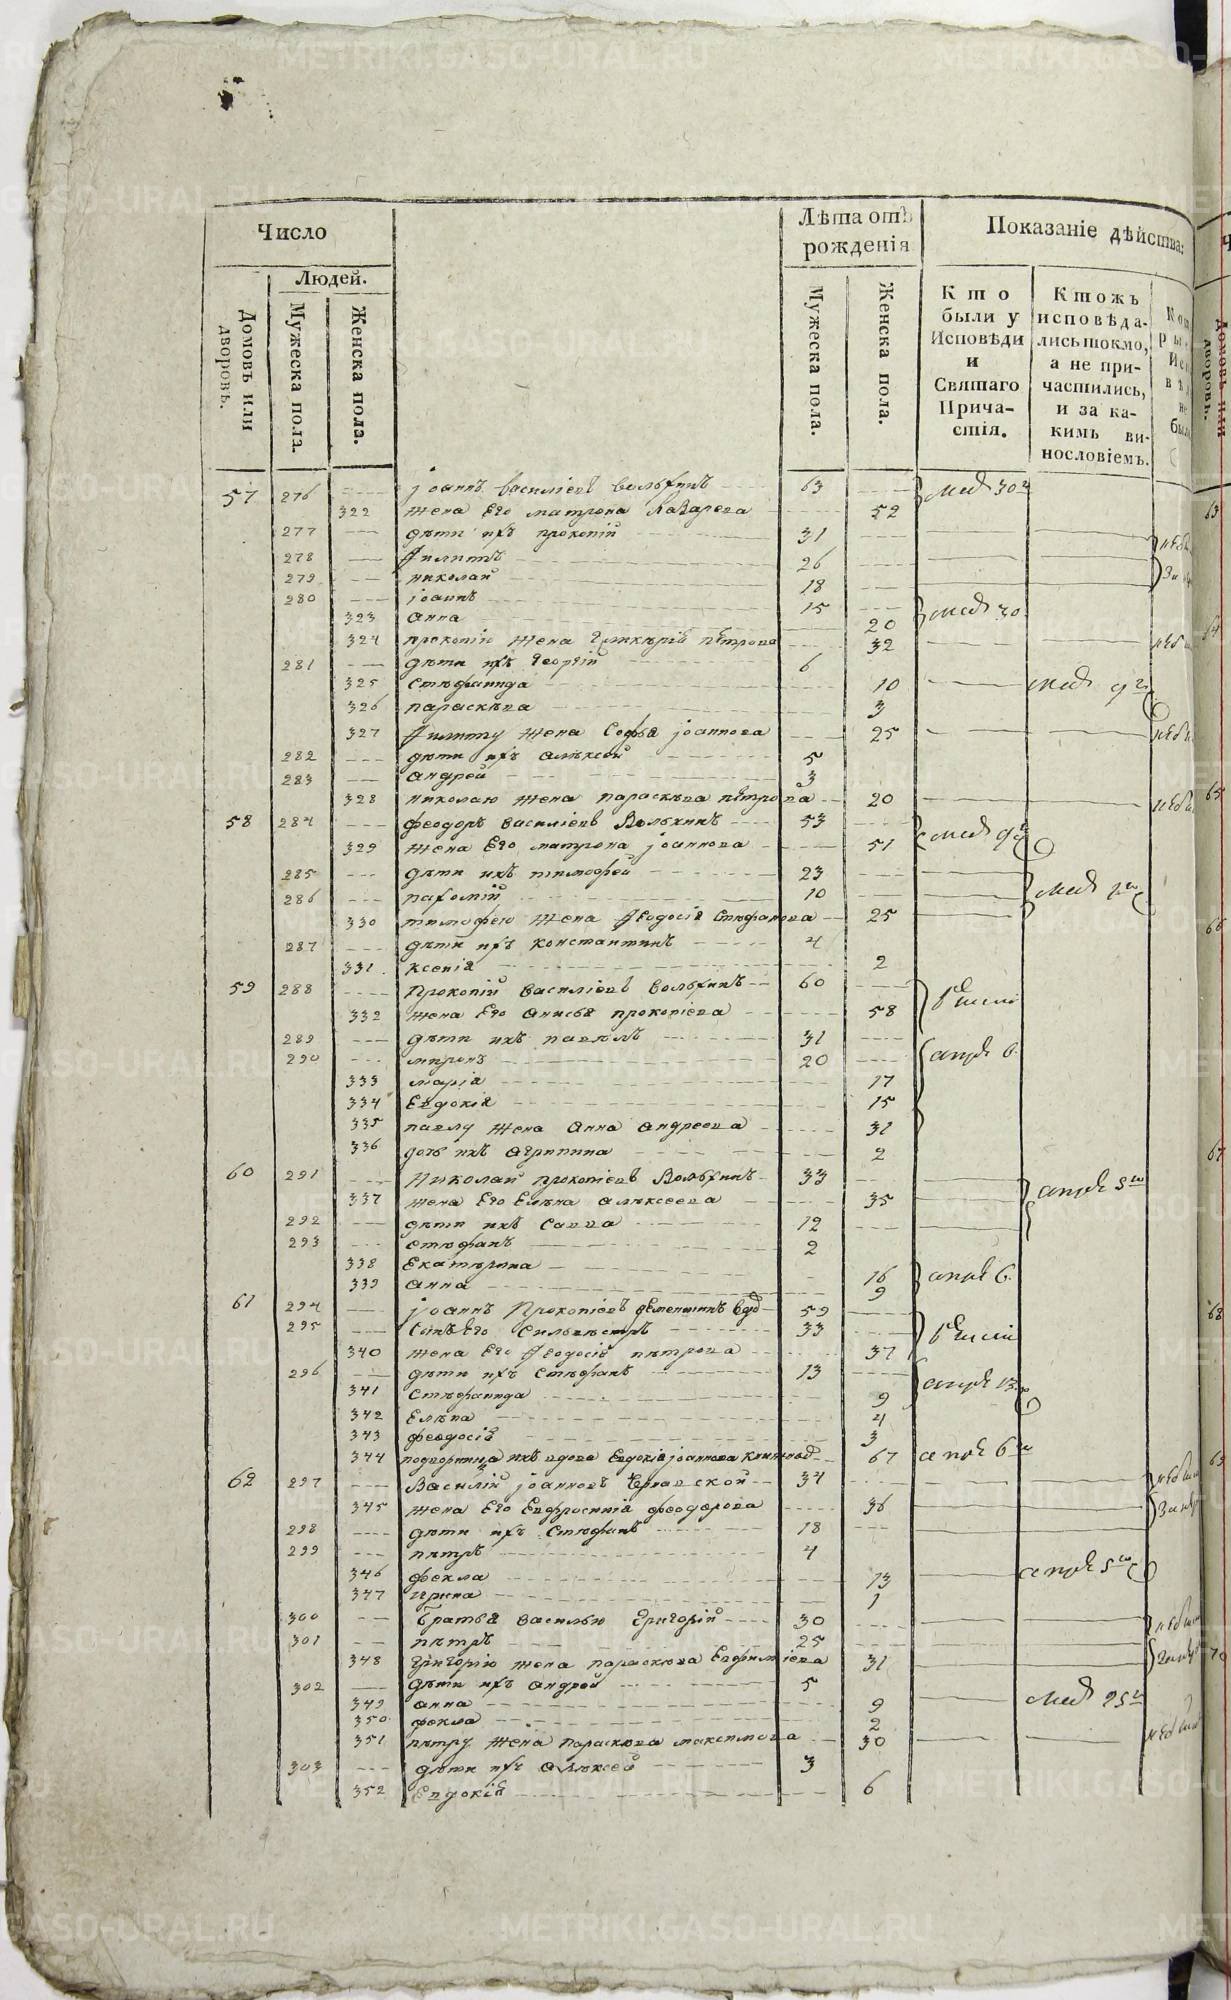 Число
Людей.
Домовъ или дворовъ.
Мужеска пола.
Женска пола.
Лѣта отъ рожденія
Мужеска пола.
Женска пола.
Показаніе дѣйства:
Кто были у Исповѣди и Святаго Причастія.
Ктожъ исповѣдались токмо, а не причастились, и за какимъ винословіемъ.
57 276 Іоаннъ Василіевъ Вольхинъ 63
322 жена Его матрона Лазарева 52
277 дѣти ихъ прокопій 31
278 Филиппъ 26
279 николай 18
280 іоаннъ 15
323 анна 20
324 прокопію жена петрова 32
281 дѣти ихъ Георгій 6
325 Стефанида 10
326 параскѣва 3
327 Филиппу жена Софья іоаннова 25
282 дѣти ихъ алѣксѣй 5
283 андрей 3
328 николаю жена параскѣва пѣтрова 20
58 284 феодоръ василіевъ Вольхинъ 53
329 жена Его матрона іоаннова 51
285 дѣти ихъ тимофей 23
286 пахомій 10
330 тимофею жена Феодосія Стефанова 25
287 дѣти ихъ константинъ 4
331 ксенія 2
59 288 Прокопій василіевъ вольхинъ 60
332 жена Его анисья прокопіева 58
289 дѣти ихъ павелъ 31
290 миронъ 20
333 марія 17
334 Евдокія 15
335 павлу жена анна андреева 31
336 дочь ихъ агрипина 2
60 291 Николай прокопіевъ Вольхинъ 33
337 жена Его Елѣна алѣксеева 35
292 дѣти ихъ Савва 12
293 стефанъ 2
338 Екатерина 16
339 анна 9
61 294 іоаннъ Прокопіевъ деменшинъ вдо 59
295 Сынъ Его Сильвестръ 33
340 жена Его Феодосія пѣтрова 37
296 дѣти ихъ Стефанъ 13
341 Стефанида 9
342 Елѣна 4
343 феодосія 3
344 подворница ихъ вдова Евдокія іоаннова 67
62 297 Василій іоанновъ 34
345 жена Его Евфросинія феодорова 36
298 дѣти ихъ Стефанъ 18
299 пѣтръ 4
346 фекла 13
347 ирина 1
300 Братья василью григорій 30
301 пѣтръ 25
348 григорію жена параскѣва Евфиміева 31
302 дѣти ихъ андрей 5
349 анна 9
350 фекла 2
351 пѣтру жена параскѣва максимова 30
303 дѣти ихъ алѣксей 3
352 Евдокія 6
METRIKI.GASO-URAL.RU